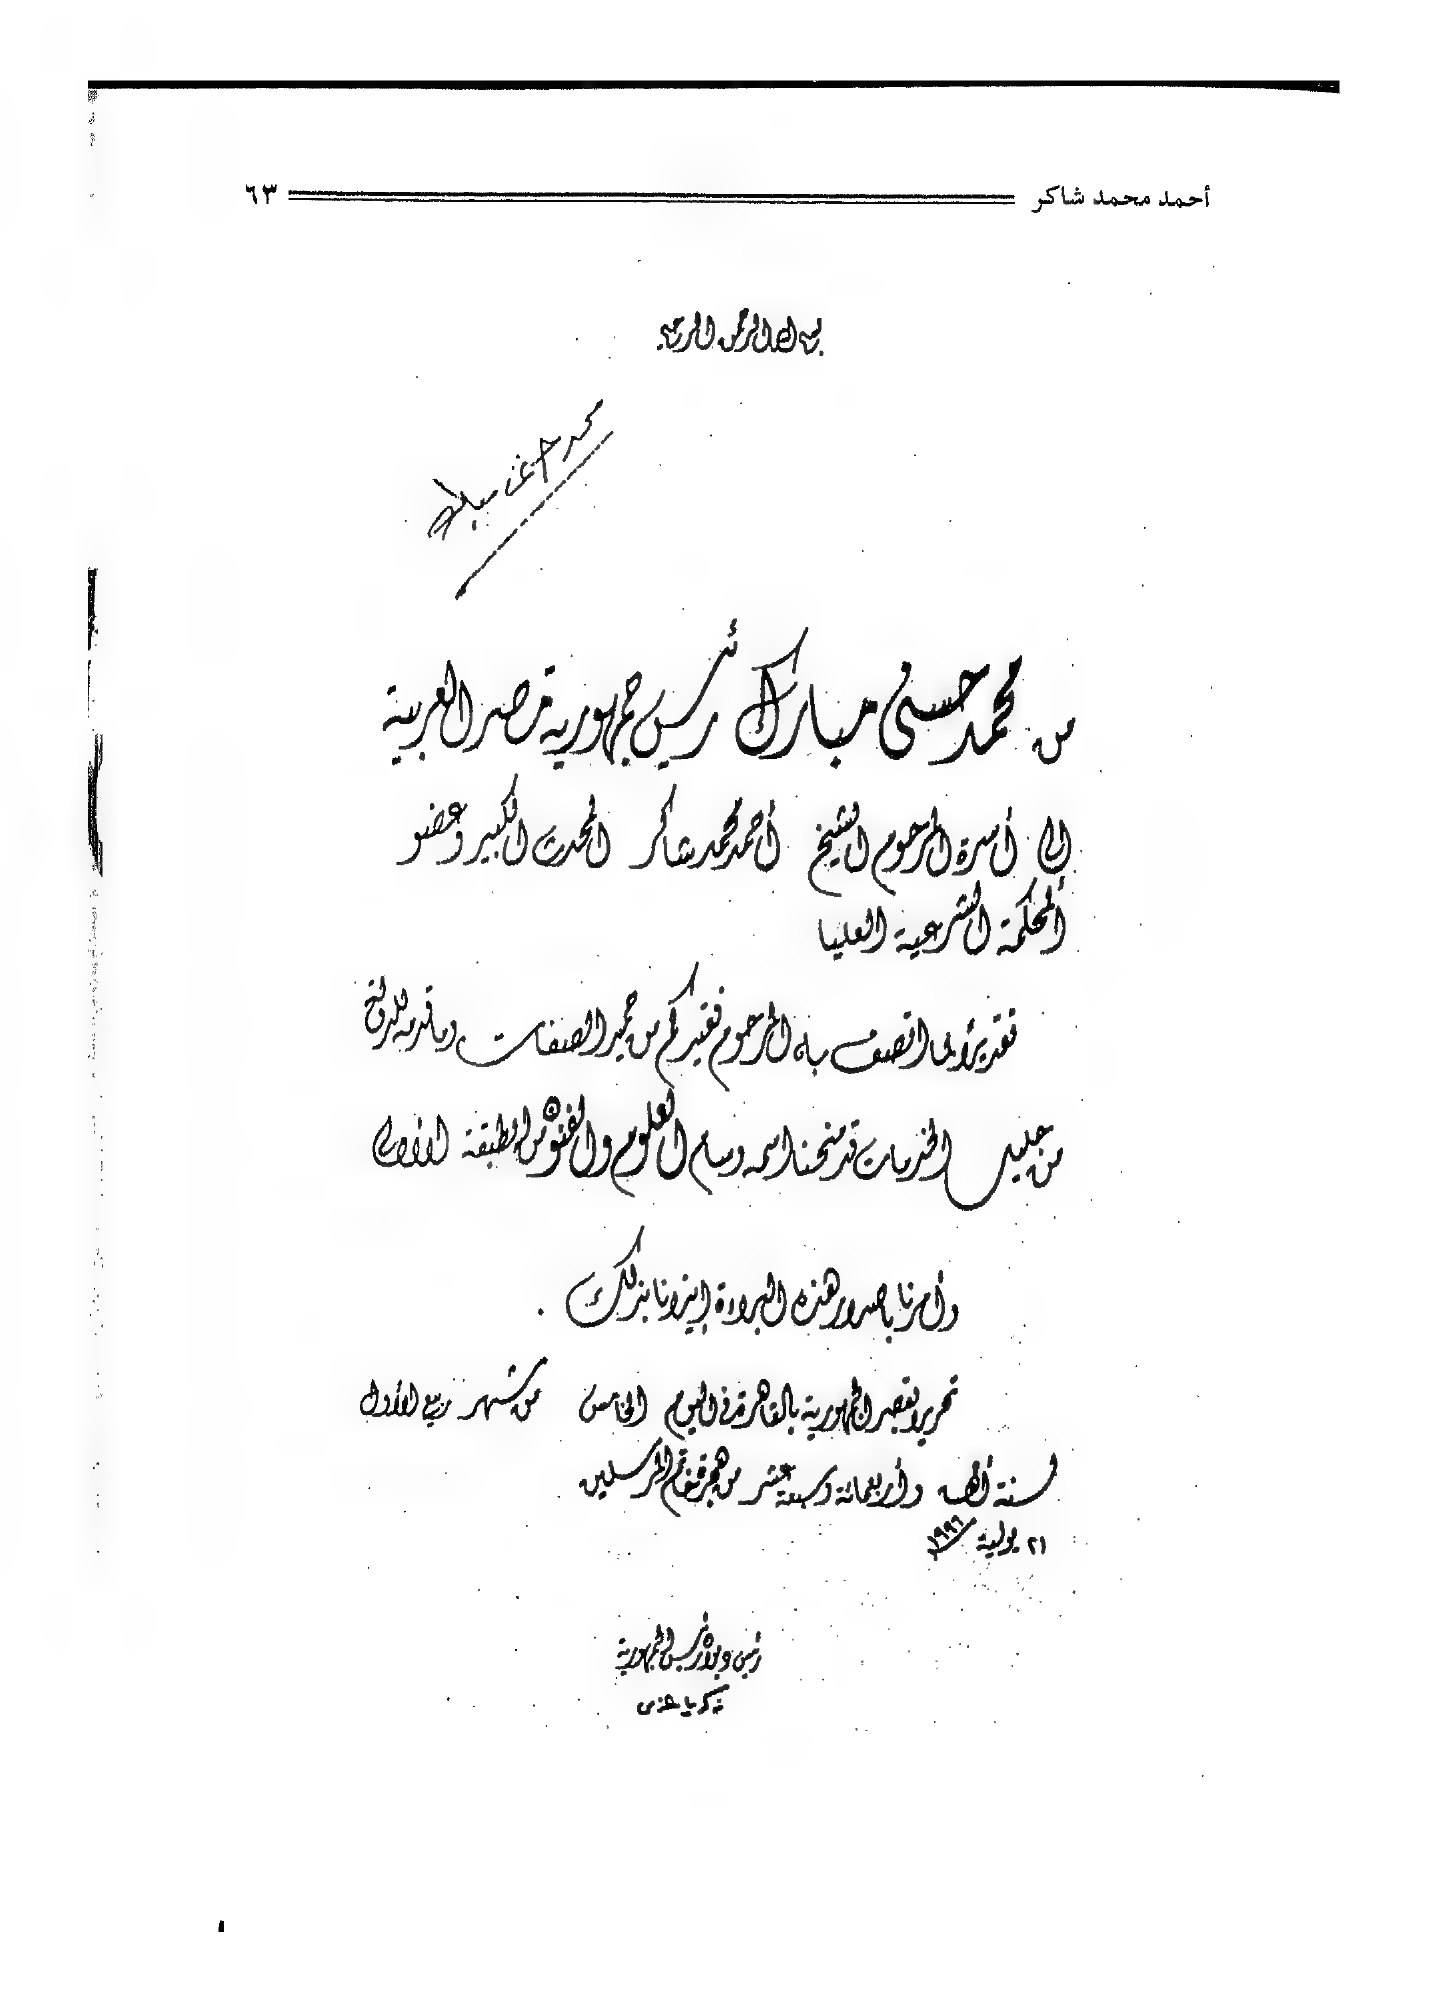 أحمد محمد شاكر ٦٣
بسم الله الرحمن الرحيم
محمد حسني مبارك
من محمد حسني مبارك رئيس جمهورية مصر العربية
إلى أسرة المرحوم الشيخ أحمد محمد شاكر المحدث الكبير وعضو
المحكمة الشرعية العليا
تقديرًا لما اتصف به المرحوم فقيدكم من حميد الصفات وما قدمه للدولة
من جليل الخدمات قد منحنا اسمه وسام العلوم والفنون من الطبقة الأولى
وأمرنا بإصدار هذه البراءة إيذانا بذلك .
تحريرا بقصر الجمهورية بالقاهرة في اليوم الخامس من شهر ربيع الأول
لسنة ألف وأربعمائة وسبعة عشر من هجرة خاتم المرسلين
٢١ يولية ١٩٩٦
رئيس ديوان رئيس الجمهورية
زكريا عزمى